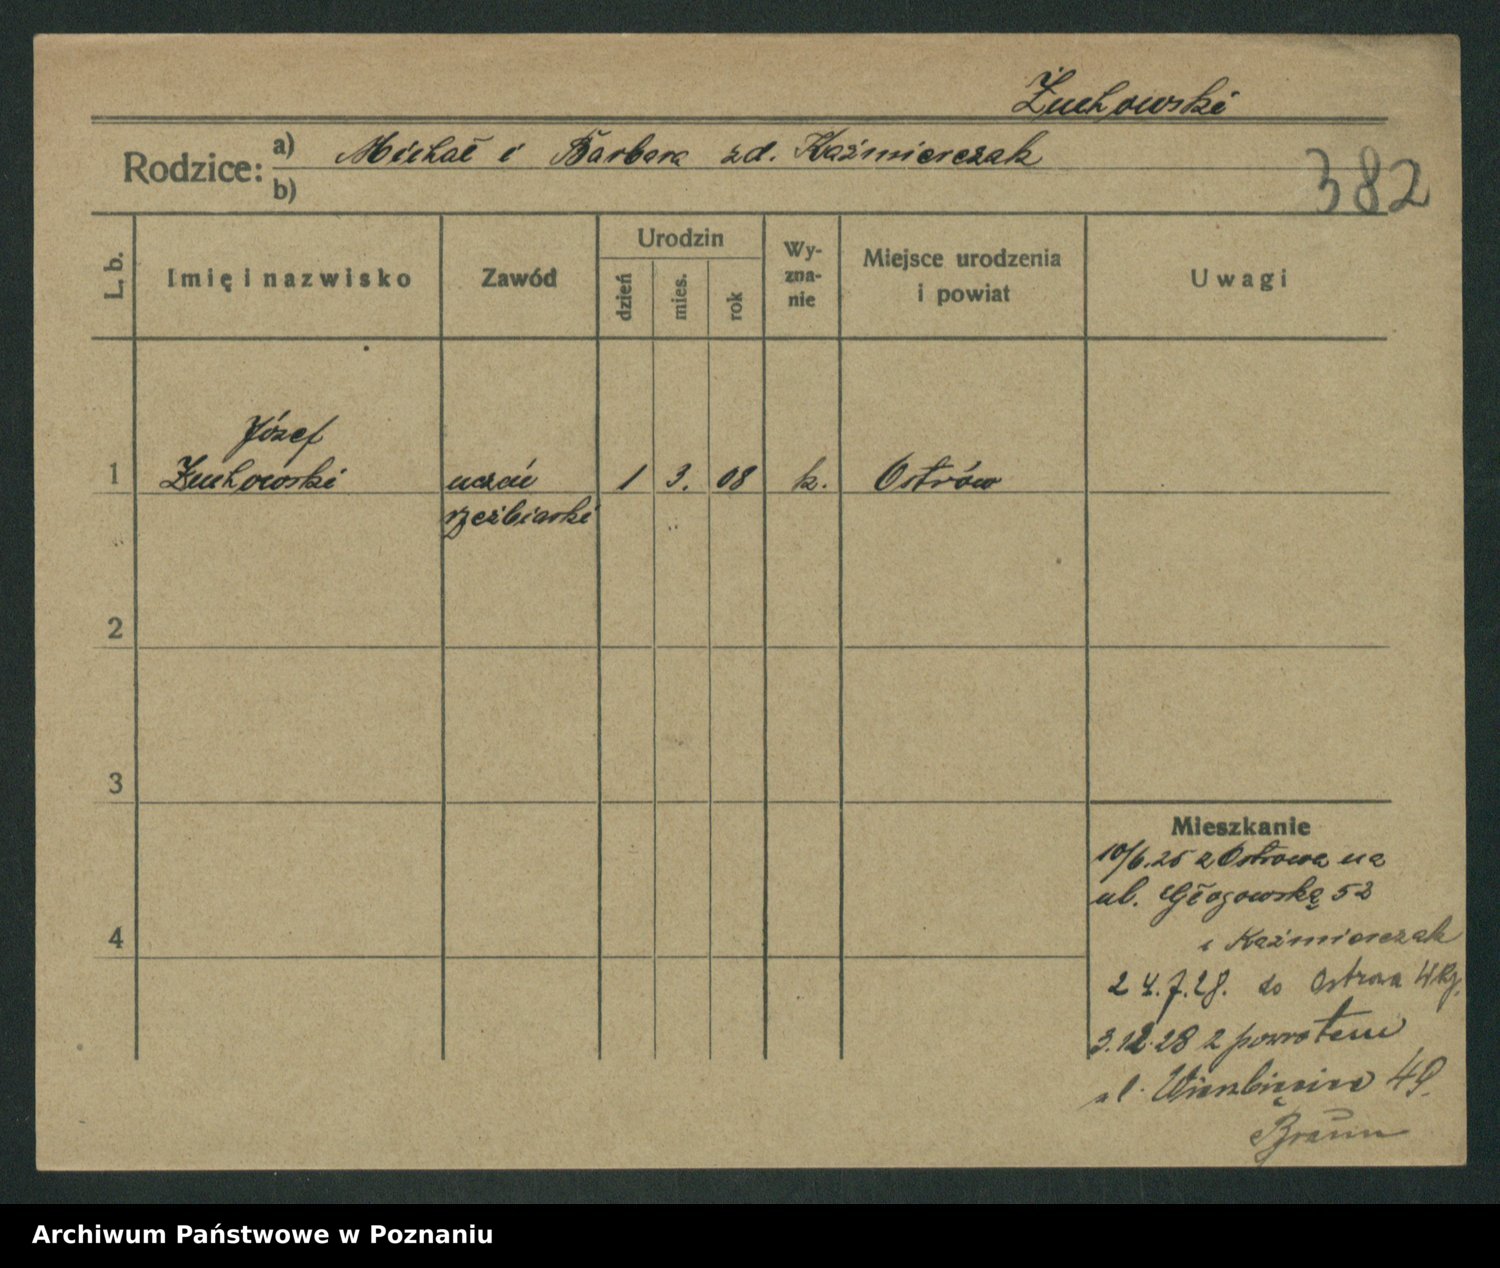 Żuchowski
Rodzice: a) Michał i Barbara zd. Kaźmierczak
b)
382
L. b.
Imię i nazwisko
Zawód
Urodzin
dzień
mies.
rok
Wy-
zna-
nie
Miejsce urodzenia
i powiat
Uwagi
Józef
1 Żuchowski uczeń 1 3. 08 k. Ostrów
rzeźbiarski
2
3
4
Mieszkanie
10/6.25 z Ostrowa na
ul. Głogowską 52
i Kaźmierczak
24.7.28. do Ostrowa Wlkp.
3.12.28 z powrotem
ul. Wierzbięcice 49.
Braun
Archiwum Państwowe w Poznaniu